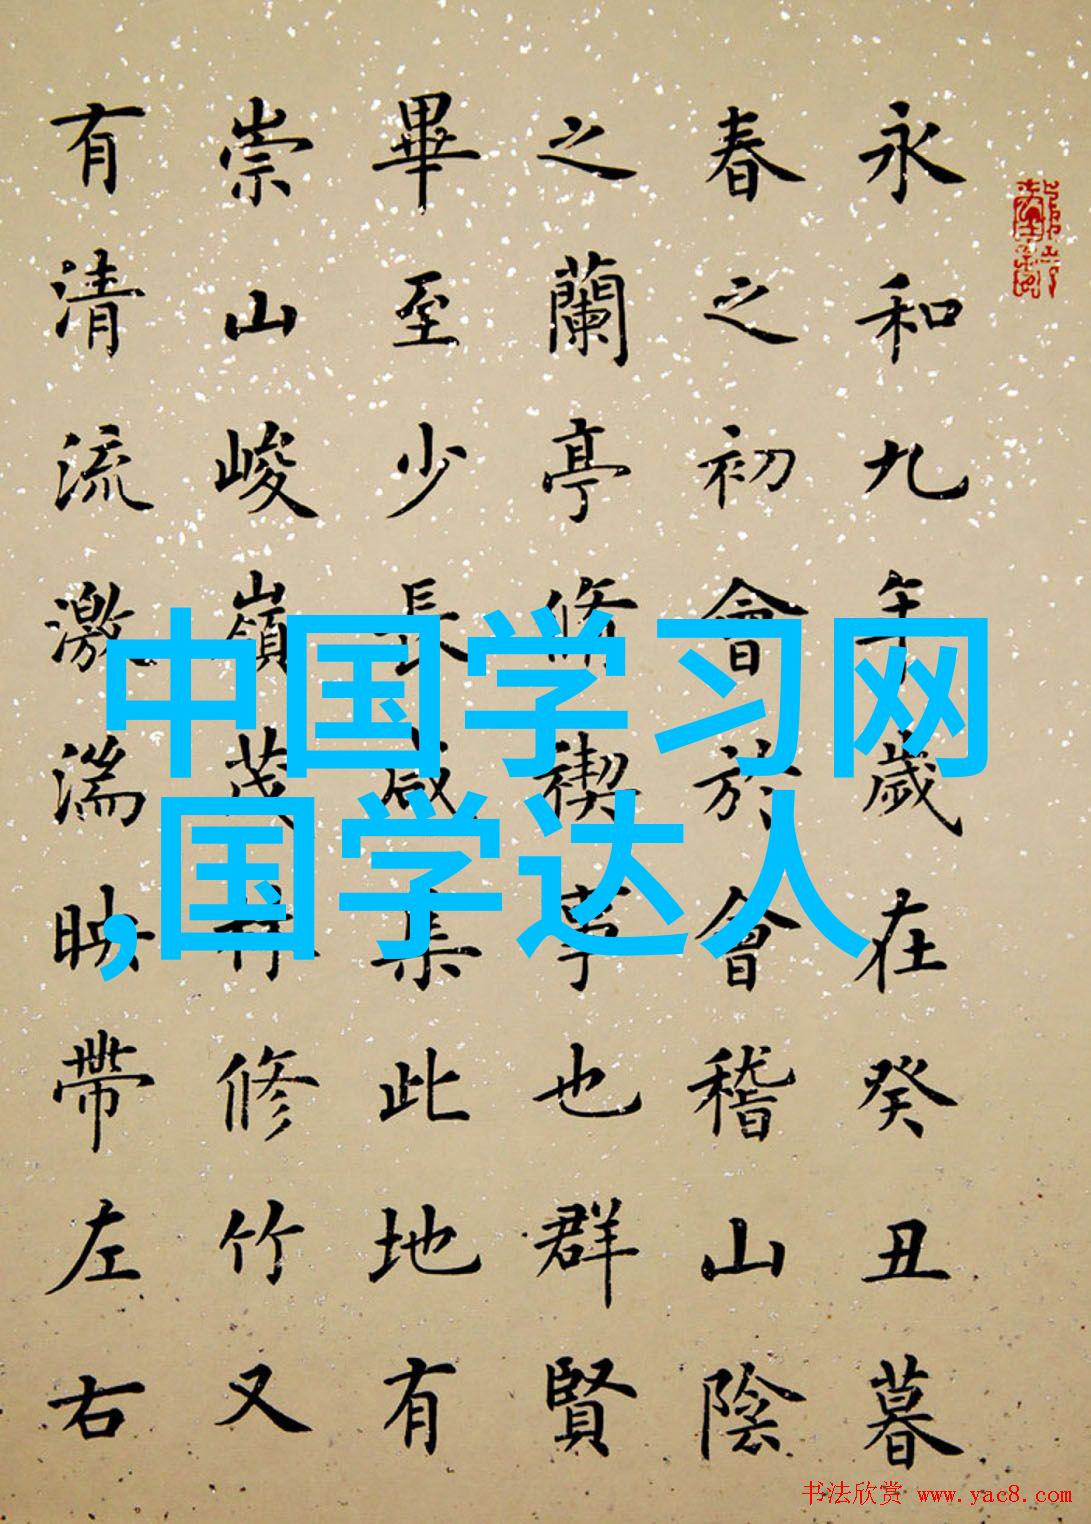 永和九年歲在癸丑暮
春之初會於會稽山陰
之蘭亭脩禊事也群賢
畢至少長咸集此地有
崇山峻嶺茂林修竹又
有清流激湍映帶左右
中国学习网
,国学达人
书法欣赏 www.yac8.com